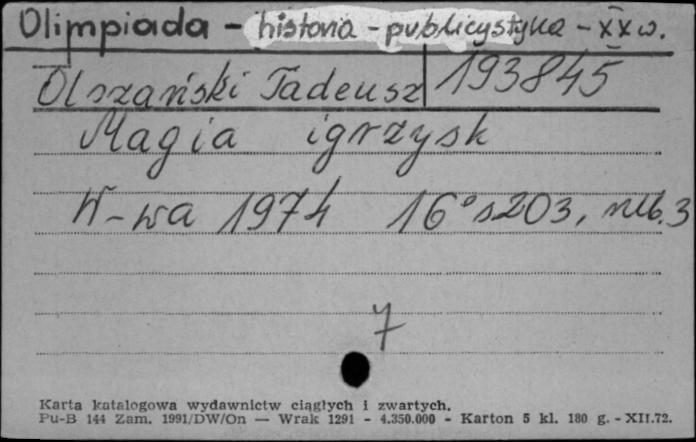 Olimpiada - historia - publicystyka - XX w.
Olszański Tadeusz 193845
Magia igrzysk
W-wa 1974 16° s203, nlb. 3
7
Karta katalogowa wydawnictw ciągłych i zwartych.
Pu-B 144 Zam. 1991/DW/On — Wrak 1291 - 4.350.000 - Karton 5 kl. 180 g. - XII.72.